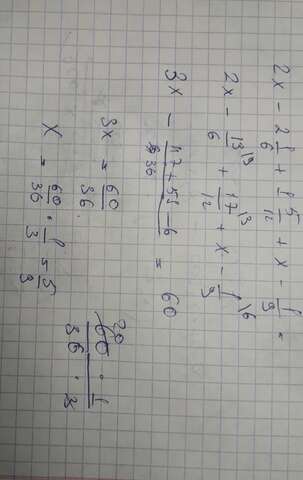 2x - 2 1/6 + 1 5/12 + x - 1/3 =
2x - 13/6 \3 + 17/12 \3 + x - 1/3 \6
3x - 117 + 51 - 6 / 36 = 60
3x = 60/36
x = 60/36 · 1/3 = 5/9
20 60/36 · 1/3